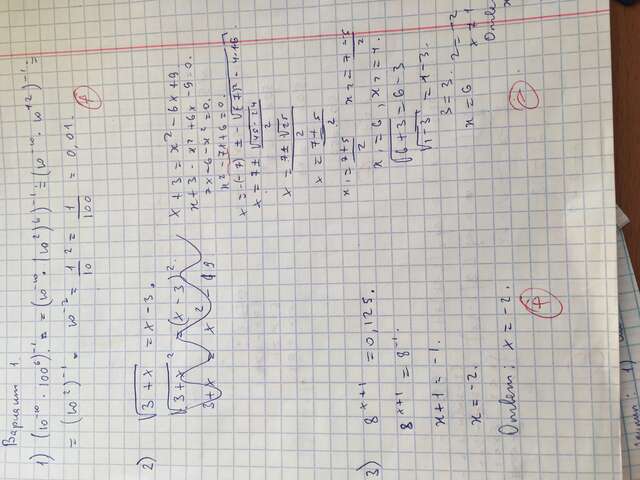 Вариант 1.
1) (10⁻¹⁰ · 100⁶)⁻¹ = = (10⁻¹⁰ · (10²)⁶)⁻¹ = (10⁻¹⁰ · 10¹²)⁻¹ =
= (10²)⁻¹ = 10⁻² = 1/10² = 1/100 = 0,01.
2) √(3 + x) = x - 3.
√(3+x)² = (x - 3)²
3+x = x² -
x + 3 = x² - 6x + 9
x + 3 - x² + 6x - 9 = 0.
7x - 6 - x² = 0.
x² - 7x + 6 = 0.
x = 7 ±
x = (7 ± √25)/2
x = (7 ± 5)/2
x₁ = (7+5)/2 x₂ = (7-5)/2
x₁ = 6, x₂ = 1.
√(6+3) = 6 - 3
= 1 - 3.
3 = 3.
2 = -2
x = 6
x ≠ 1
Отве
3) 8ˣ⁺¹ = 0,125.
8ˣ⁺¹ = 8⁻¹
x+1 = -1.
x = -2.
Ответ: x = -2.
1)